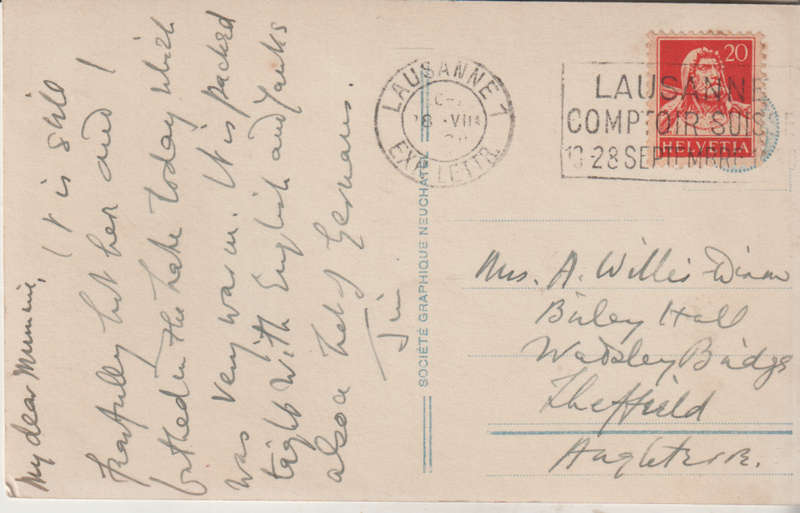 My dear Mummie,
It is still
frightfully hot here and I
bathed in the Lake today which
was very warm. It is packed
tight with English and Yanks
also a lot of Germans.
Jim
SOCIÉTÉ GRAPHIQUE NEUCHATEL
LAUSANNE 1
VIII
EXP. LETTR.
20
HELVETIA
LAUSANNE
COMPTOIR SUISSE
13-28 SEPTEMBRE
Mrs. A. Willis Dixon
Birley Hall
Wadsley Bridge
Sheffield
Angleterre.